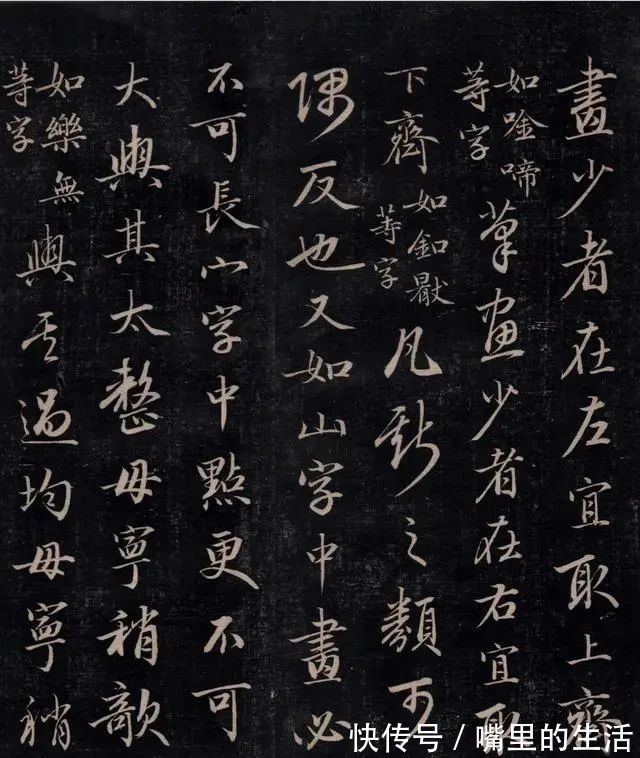 畫少者在左宜取上齊
如唫啼
等字
筆畫少者在右宜取
下齊
如釦
等字
凡斯之類可
隅反也又如山字中畫必
不可長宀字中點更不可
大與其太整毋寧稍欹
如樂無
等字
與其過均毋寧稍
快传号 / 嘴里的生活